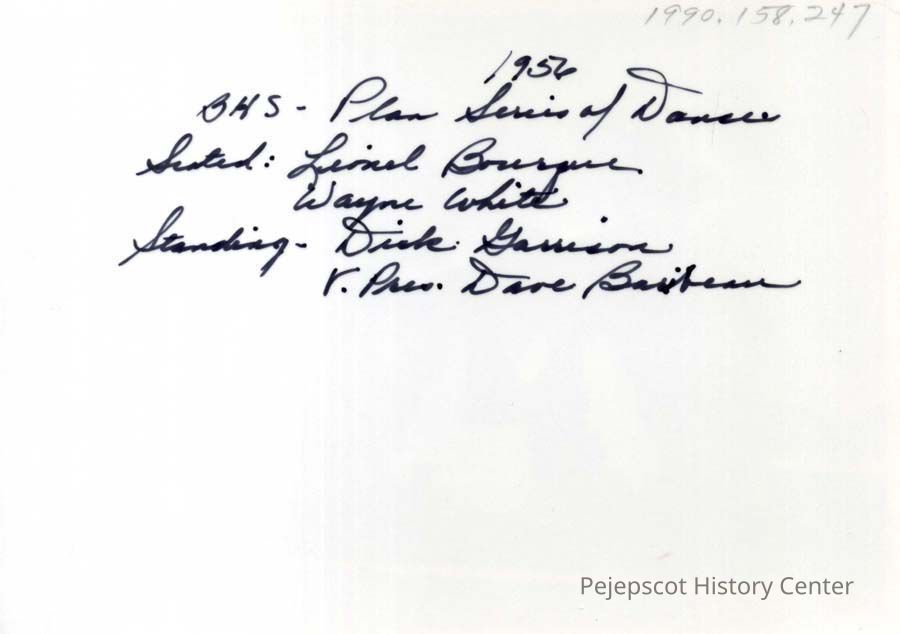 1990.158.247
1956
BHS - Plan Series of Dances
Seated: Lionel Bourque
Wayne White
Standing - Dick Garrison
V. Pres. Dave Baribeau
Pejepscot History Center